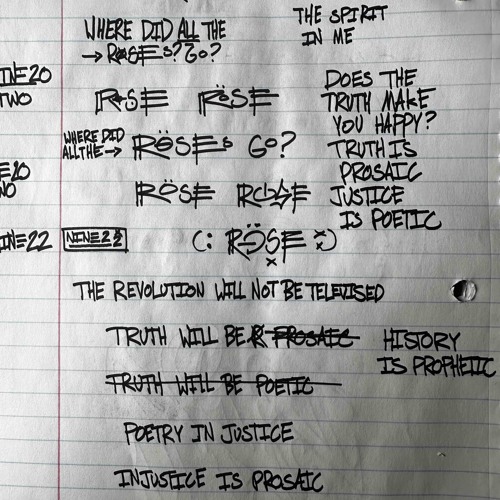 WHERE DID ALL THE
→ ROSEs? Go?
THE SPIRIT
IN ME
NINE20
TWO
ROSE RÖSE
DOES THE
TRUTH MAKE
YOU HAPPY?
WHERE DID
ALL THE → RÖSEs GO?
TRUTH IS
PROSAIC
RÖSE ROSE
JUSTICE
IS POETIC
NINE22 NINE22
(: RÖSE :)
THE REVOLUTION WILL NOT BE TELEVISED
TRUTH WILL BE PROSAIC
HISTORY
IS PROPHETIC
TRUTH WILL BE POETIC
POETRY IN JUSTICE
INJUSTICE IS PROSAIC